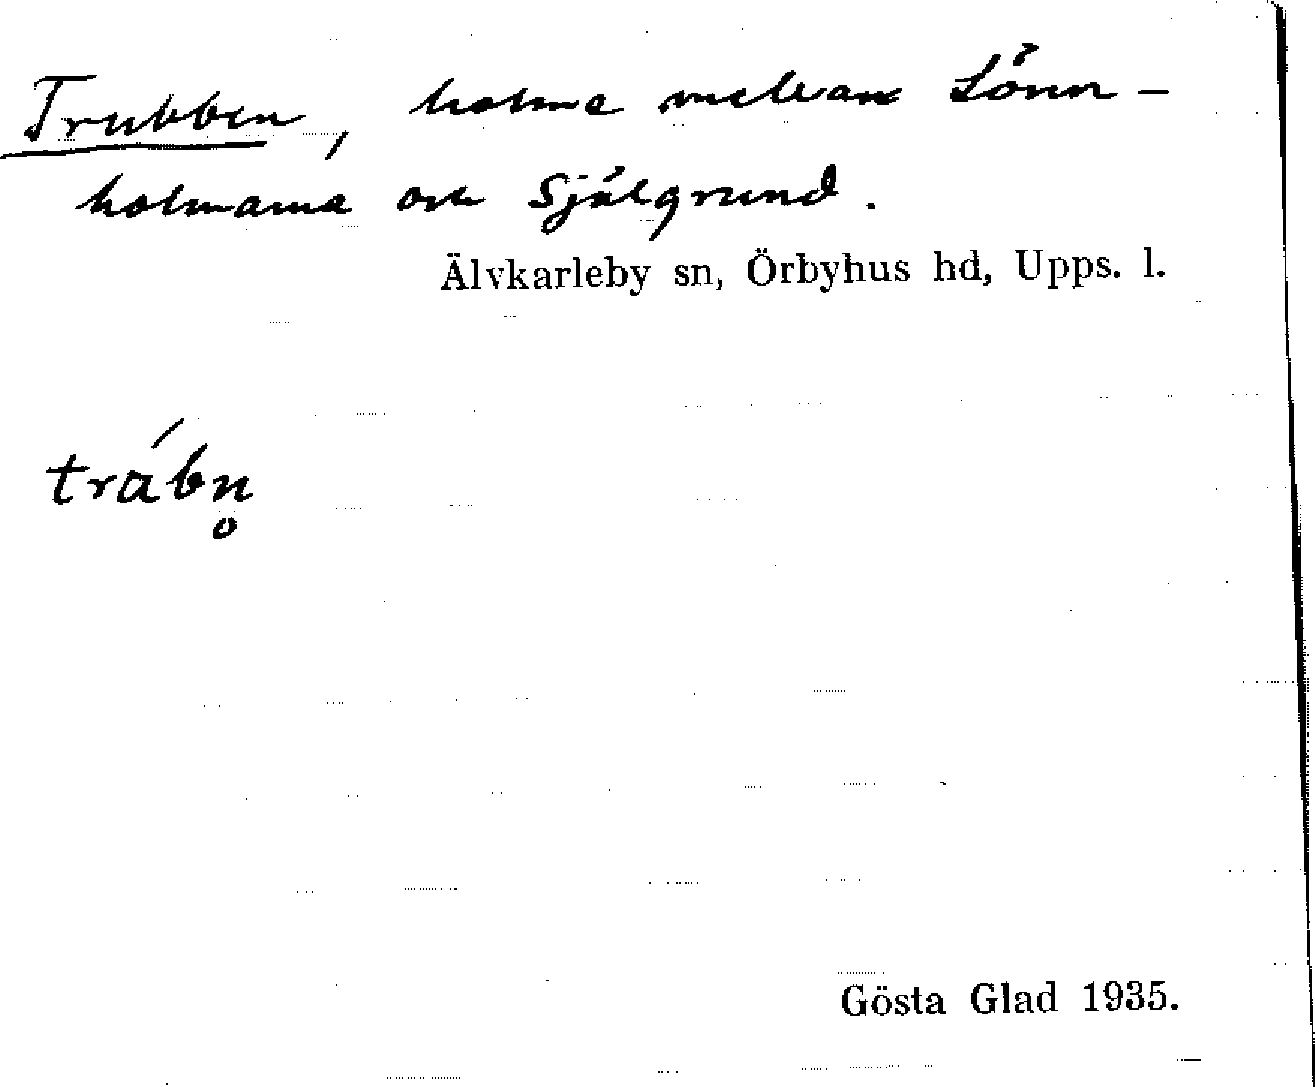 Trubben, holme mellan Lönn-
holmarna och Själgrund.
Älvkarleby sn, Örbyhus hd, Upps. l.
Gösta Glad 1935.